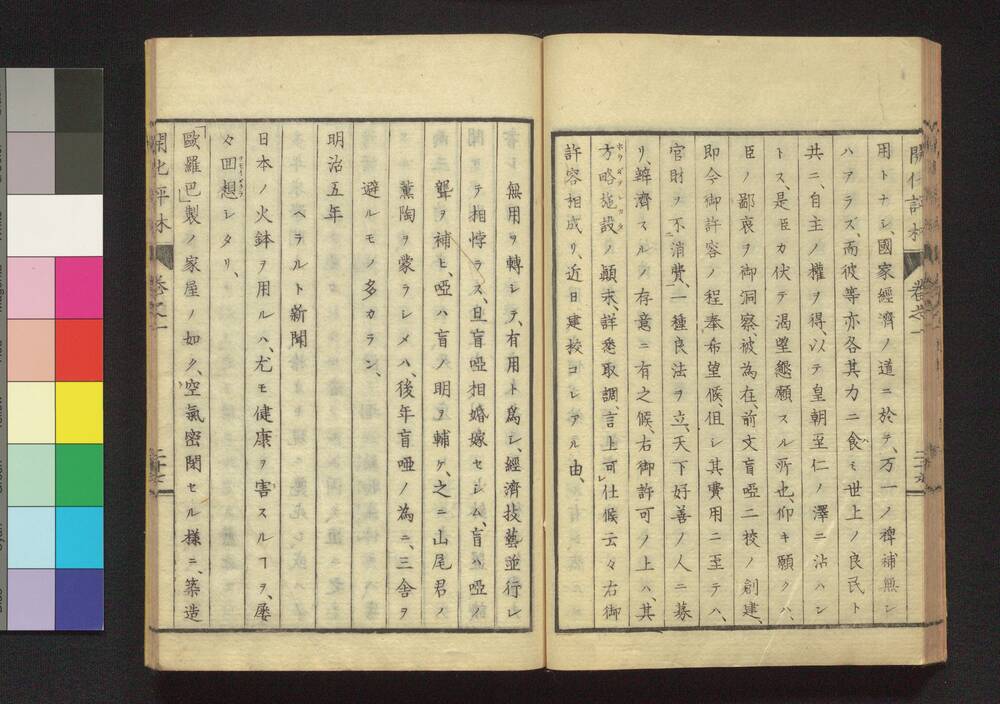 開化評林 卷之一
用トナシ、國家經濟ノ道ニ於テ、万一ノ裨補無シ
ハアラズ、而彼等亦各其力ニ食ミ世上ノ良民ト
共ニ、自主ノ權ヲ得、以テ皇朝至仁ノ澤ニ沾ハン
トス、是臣カ伏テ渇望懇願スル所也、仰キ願クハ、
臣ノ鄙衷ヲ御洞察被為在、前文盲啞二校ノ創建、
即今御許容ノ程奉希望候、但シ其費用ニ至テハ、
官財ヲ不消費、一種良法ヲ立、天下好善ノ人ニ募
リ、辨濟スルノ存意ニ有之候、右御許可ノ上ハ、其
方略施設ノ顚末、詳悉取調、言上可仕候云々右御
許容相成リ、近日建校コレアル由、
無用ヲ轉シテ、有用ト爲シ、經濟技藝並行レ
テ相悖ラス、且盲啞相婚嫁セシム、盲ハ啞ノ
聾ヲ補ヒ、啞ハ盲ノ明ヲ輔ケ、之ニ山尾君ノ
薫陶ヲ蒙ラシメハ、後年盲啞ノ為ニ、三舎ヲ
避ルモノ多カラン、
明治五年
ヘラルト新聞
日本ノ火鉢ヲ用ルハ、尤モ健康ヲ害スルヿヲ、屡
々回想シタリ、
「歐羅巴」製ノ家屋ノ如ク、空氣密閉セル様ニ、築造
開化評林 卷之一 二十七